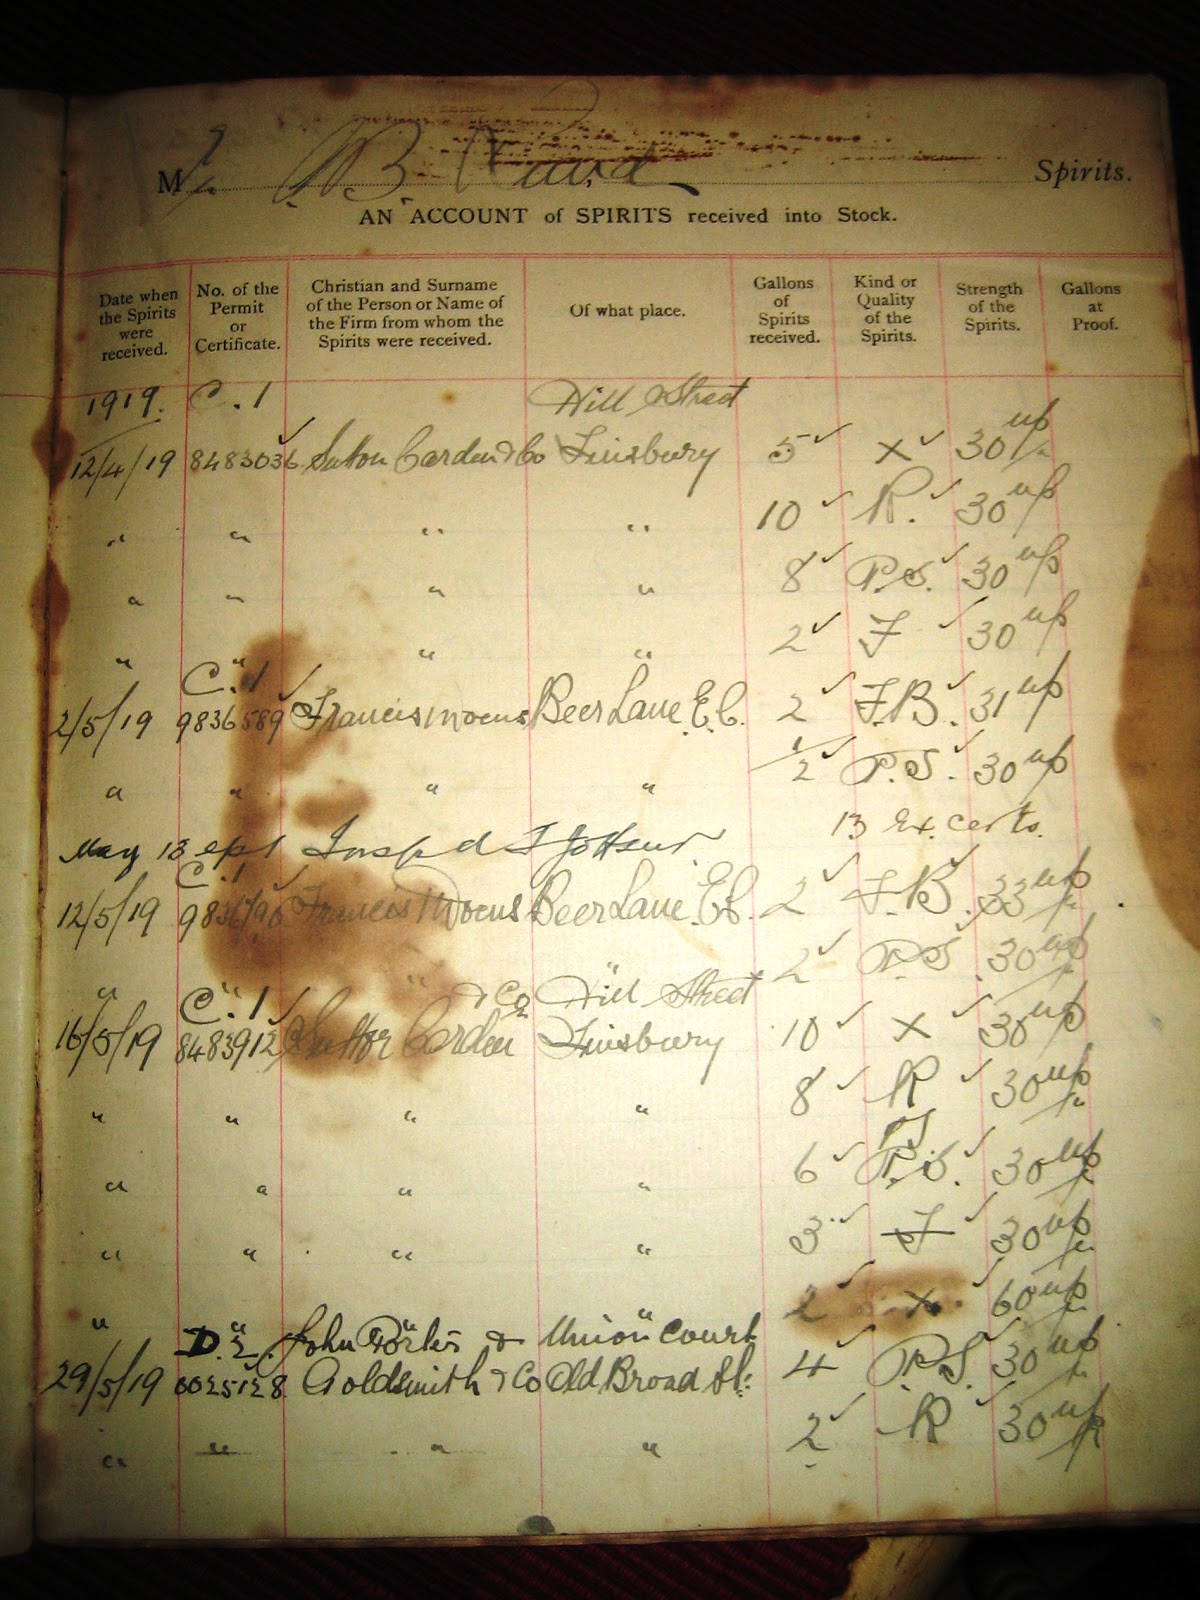 M B. Spirits.
AN ACCOUNT of SPIRITS received into Stock.
Date when the Spirits were received. No. of the Permit or Certificate. Christian and Surname of the Person or Name of the Firm from whom the Spirits were received. Of what place. Gallons of Spirits received. Kind or Quality of the Spirits. Strength of the Spirits. Gallons at Proof.
1919. C.1 Hill Street
12/4/19 8483036 Sutton Carden & Co Finsbury 5 X 30 up
" " " " 10 R. 30 up
" " " " 8 P.S. 30 up
" " " " 2 F 30 up
C.1
2/5/19 9836589 Francis Beer Lane E.C. 2 F.B. 31 up
" " " " 1/2 P.S. 30 up
13 Ex. Certs.
May 13
C.1
12/5/19 Francis Beer Lane E.C. 2 F.B. 33 up
" " " " 2 P.S 30 up
C.1 & Co Hill Street
16/5/19 8483912 Sutton Carden Finsbury 10 X 30 up
" " " " 8 R 30 up
PS
" " " " 6 P.S. 30 up
" " " " 3 F 30 up
" " " " 2 X 60 up
John & Union Court
29/5/19 6025128 Goldsmith & Co Old Broad St. 4 P.S. 30 up
" " " " 2 R 30 up